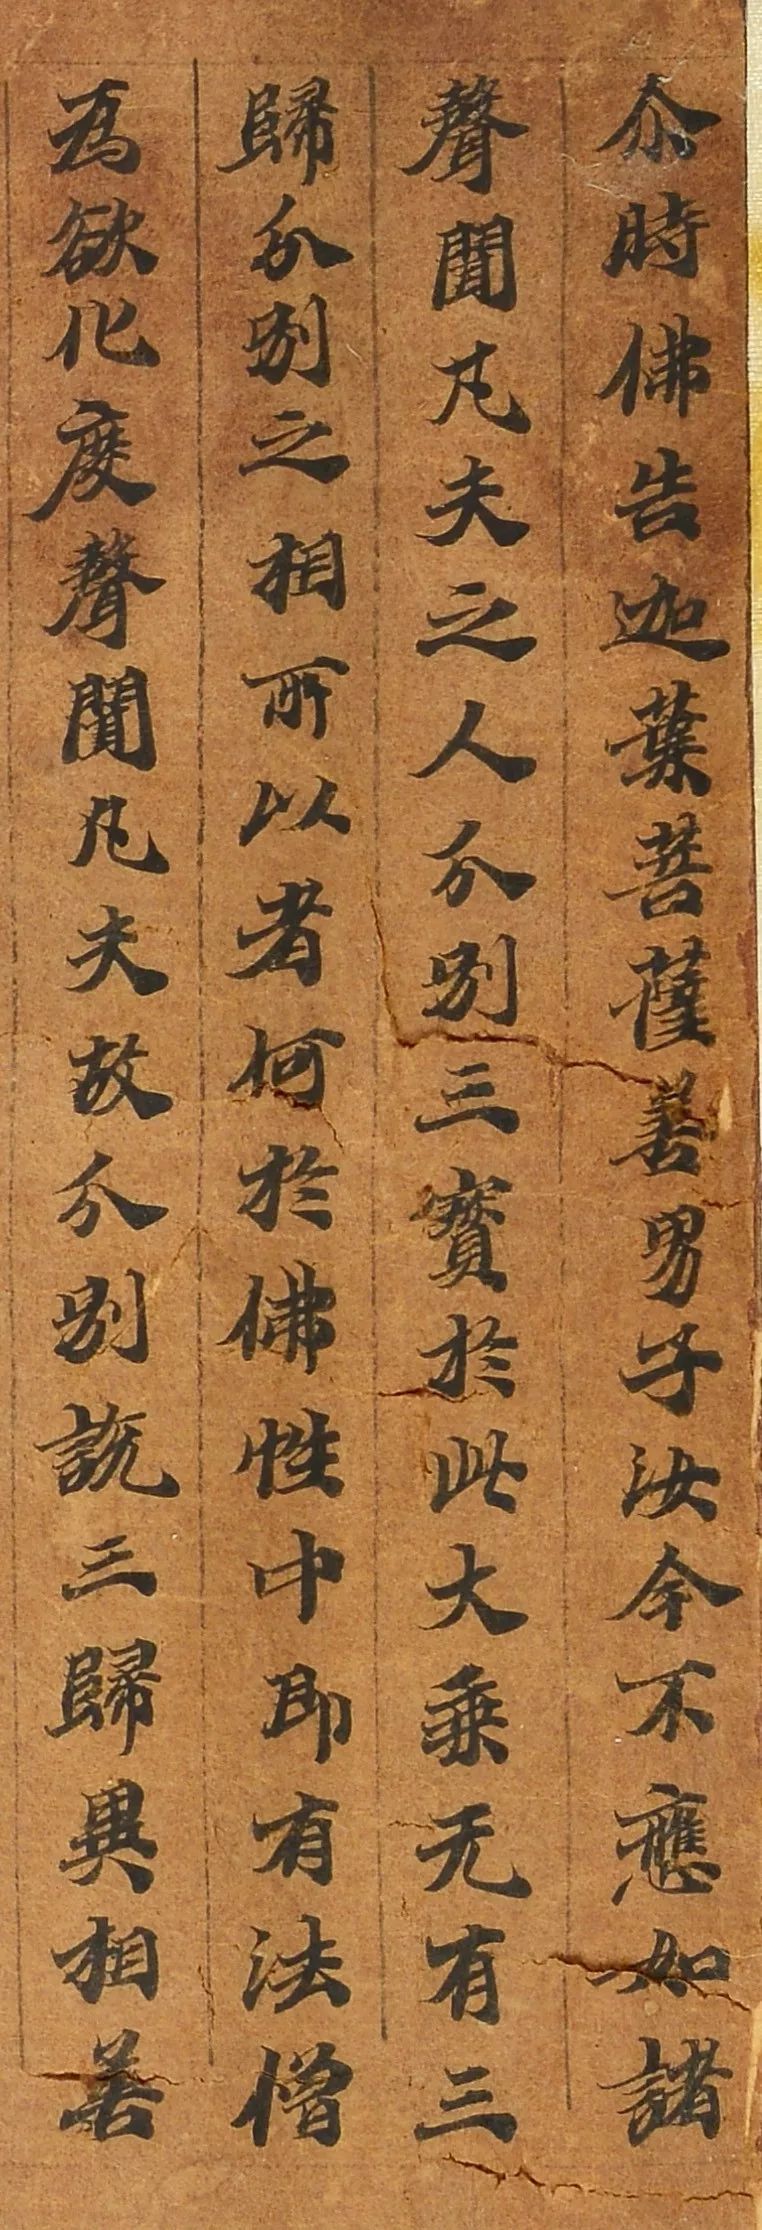 尒時佛告迦葉菩薩善男子汝今不應如諸
聲聞凡夫之人分別三寶於此大乘无有三
歸分別之相所以者何於佛性中即有法僧
為欲化度聲聞凡夫故分別說三歸異相善